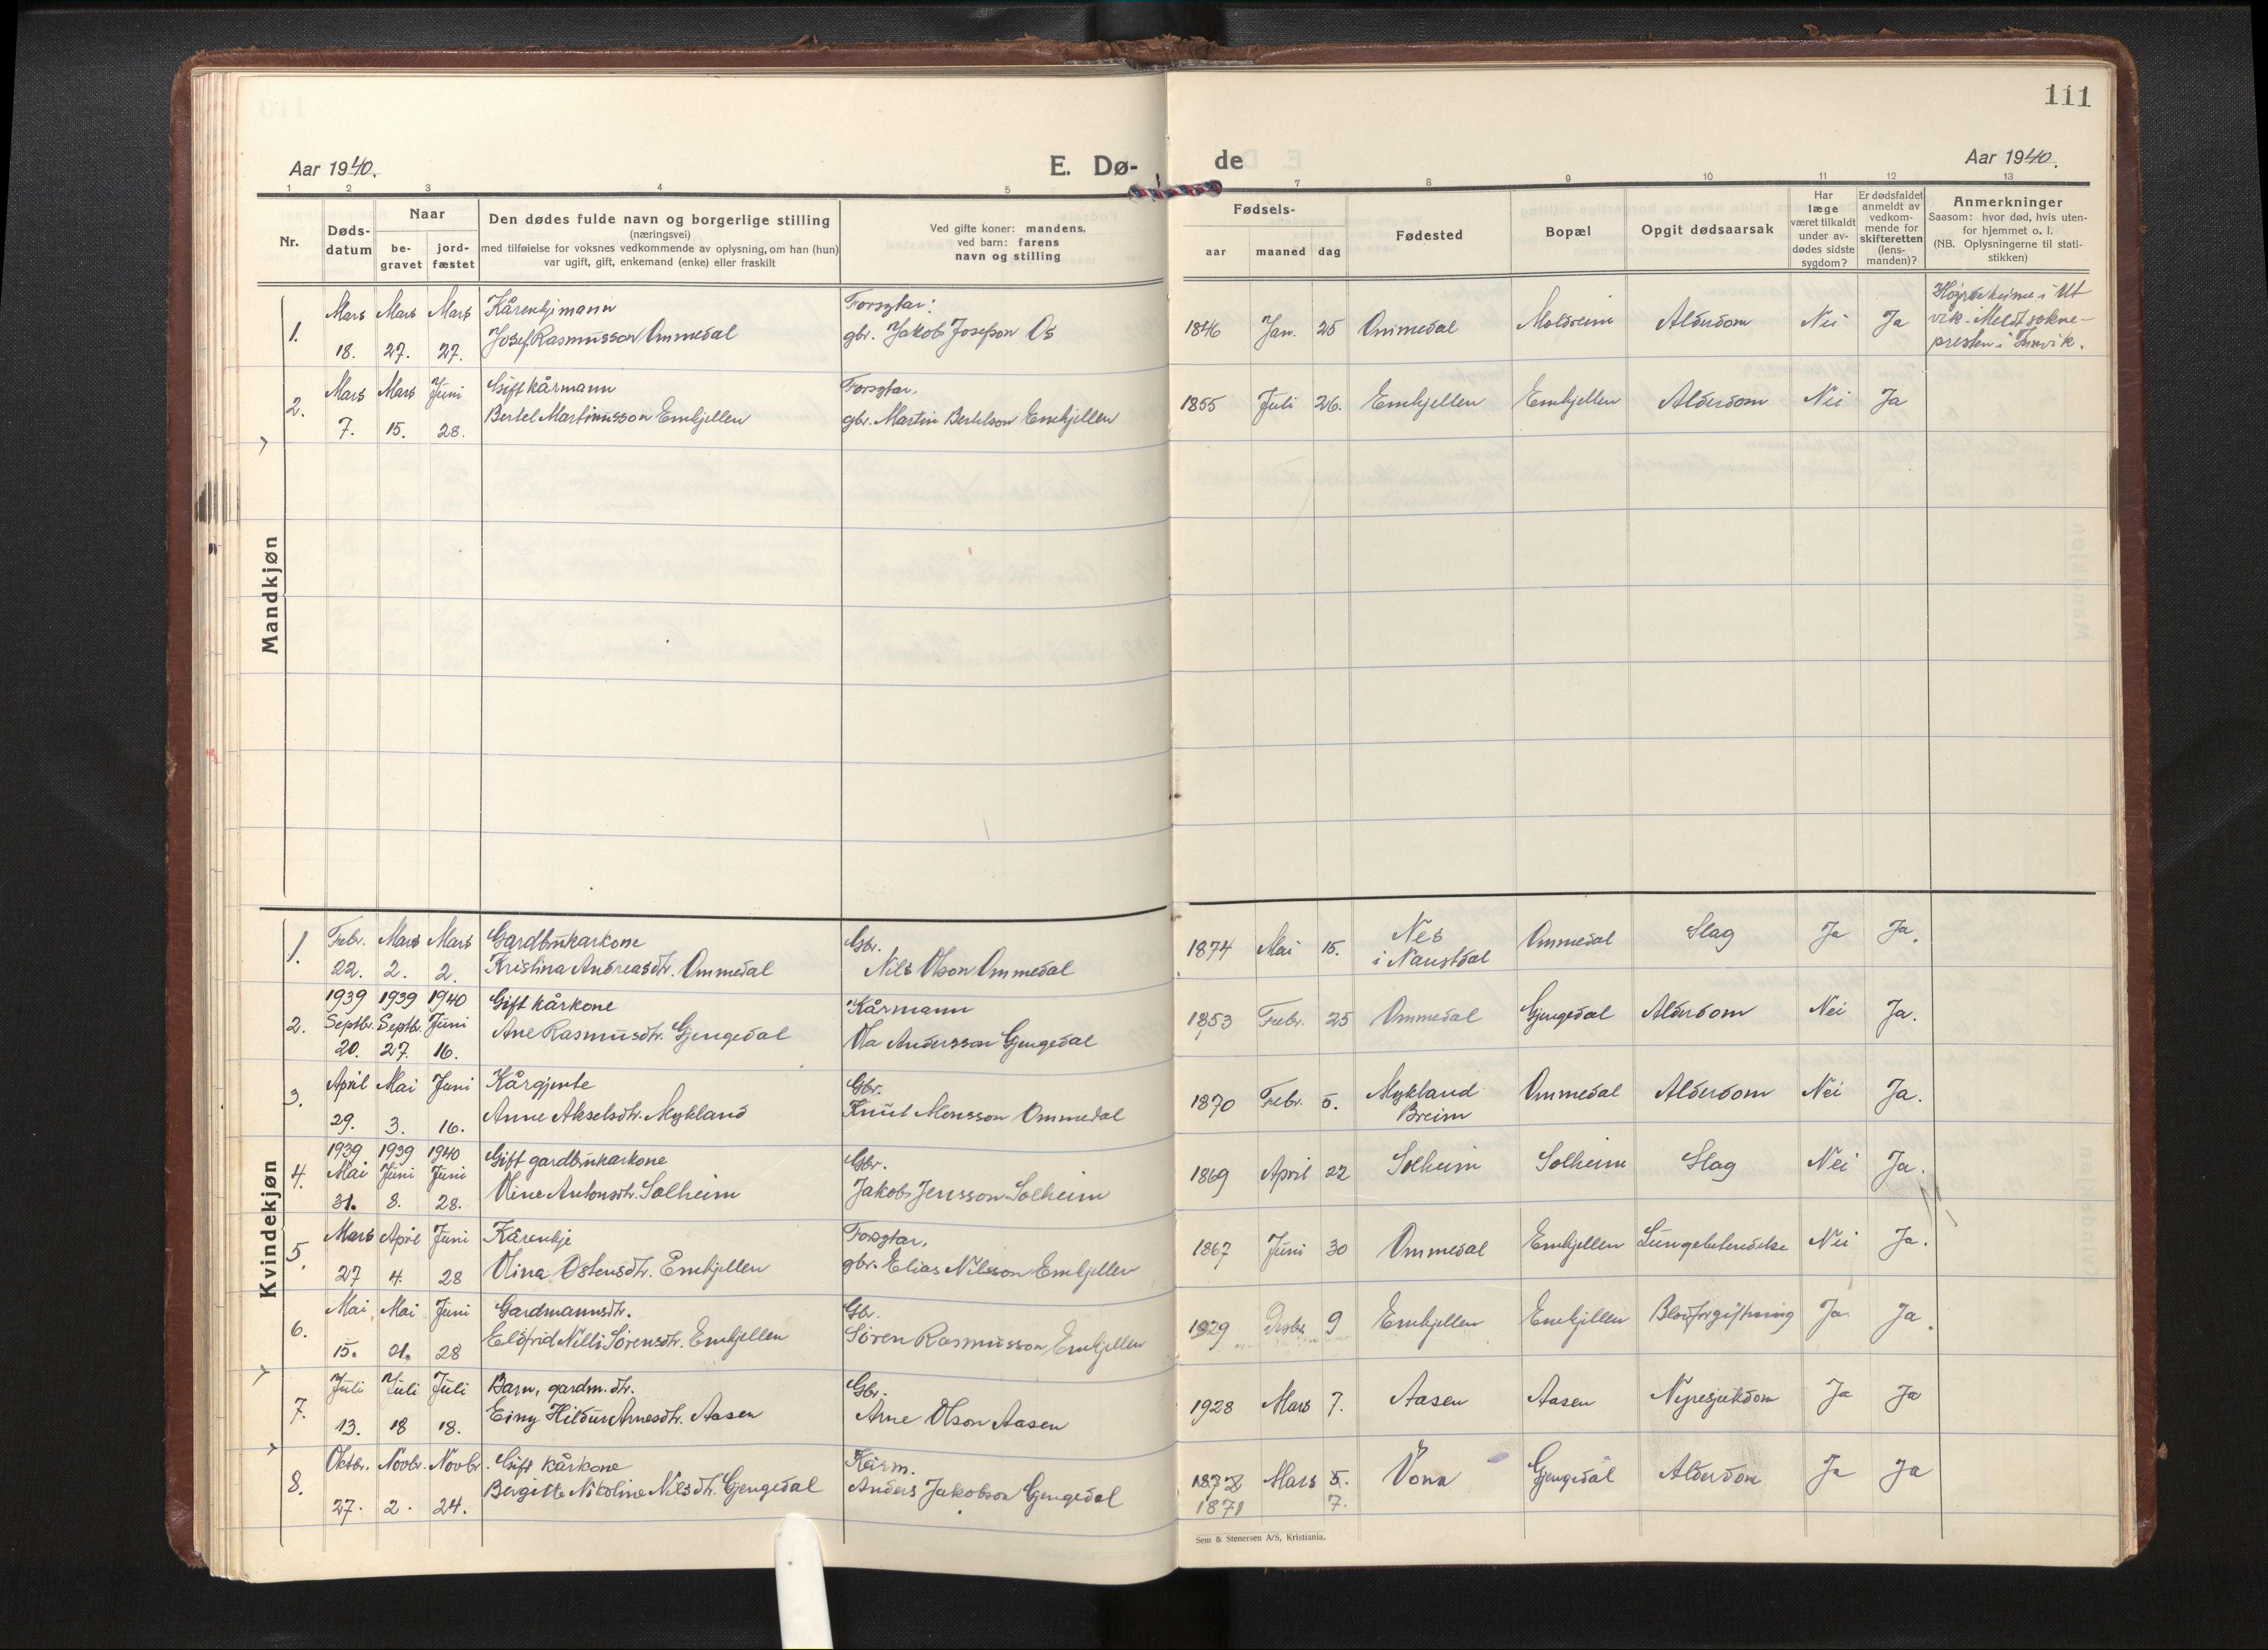 111
Aar 1940.
E. Dø-
de
Aar 1940.
1 2 3 4 5 7 8 9 10 11 12 13
Nr.
Døds-
datum
Naar
be-
gravet
jord-
fæstet
Den dødes fulde navn og borgerlige stilling
(næringsvei)
med tilføielse for voksnes vedkommende av oplysning, om han (hun)
var ugift, gift, enkemand (enke) eller fraskilt
Ved gifte koner: mandens,
ved barn: farens
navn og stilling
Fødsels-
aar maaned dag
Fødested
Bopæl
Opgit dødsaarsak
Har
læge
været tilkaldt
under av-
dødes sidste
sygdom?
Er dødsfaldet
anmeldt av
vedkom-
mende for
skifteretten
(lens-
manden)?
Anmerkninger
Saasom: hvor død, hvis uten-
for hjemmet o. l.
(NB. Oplysningerne til stati-
stikken)
Mandkjøn
1. Mars Mars Mars Kårenkjimann Forsytar:
18. 27. 27. Josef Rasmusson Ommedal gbr. Jakob Josefson Os 1846 Jan. 25 Ommedal Moldreim Alderdom Nei Ja
i Ut
vik. Meldt sokne-
presten i Innvik.
2. Mars Mars Juni Gift kårmann Forsytar.
7. 15. 28. Bertel Martinusson Emhjellen gbr. Martin Bertelson Emhjellen 1855 Juli 26. Emhjellen Emhjellen Alderdom Nei Ja
Kvindekjøn
1. Febr. Mars Mars Gardbrukarkone Gbr.
22. 2. 2. Kristina Andreasdtr. Ommedal Nils Olson Ommedal 1874 Mai 15. Nes
i Naustdal Ommedal Slag Ja Ja.
1939 1939 1940 Gift kårkone Kårmann
2. Septbr. Septbr. Juni
20. 27. 16. Ane Rasmusdtr. Gjengedal Ola Andersson Gjengedal 1853 Febr. 25 Ommedal Gjengedal Alderdom Nei Ja.
3. April Mai Juni Kårgjente Gbr.
29. 3. 16. Anne Akselsdtr. Mykland Knut Monsson Ommedal 1870 Febr. 5. Mykland
Breim Ommedal Alderdom Nei Ja.
1939 1939 1940 Gift gardbrukarkone Gbr.
4. Mai Juni Juni
31. 8. 28. Oline Antonsdtr. Solheim Jakob Jensson Solheim 1869 April 22 Solheim Solheim Slag Nei Ja.
5. Mars April Juni Kårenkje Forsytar,
27 4. 28 Olina Ostensdtr. Emhjellen gbr. Elias Nilsson Emhjellen 1867 Juni 30 Ommedal Emhjellen Lungebetendelse Nei Ja.
6. Mai Mai Juni Gardmannsdtr. Gbr.
15. 21. 28 Eldfrid Nilli Sørensdtr. Emhjellen Søren Rasmusson Emhjellen 1929 Desbr. 9 Emhjellen Emhjellen Blodforgiftning Ja Ja.
7. Juli Juli Juli Barn, gardm. dtr. Gbr.
13. 18 18. Einy Hildur Arnesdtr. Aasen Arne Olson Aasen 1928 Mars 7. Aasen Aasen Nyresjukdom Ja Ja
8. Oktbr. Novbr. Novbr. Gift kårkone Kårm.
27. 2. 24. Bergitte Nikoline Nilsdtr. Gjengedal Anders Jakobson Gjengedal 1872 Mars 5. Vona Gjengedal Alderdom Ja Ja
1871 7.
Sem & Stenersen A/S, Kristiania.